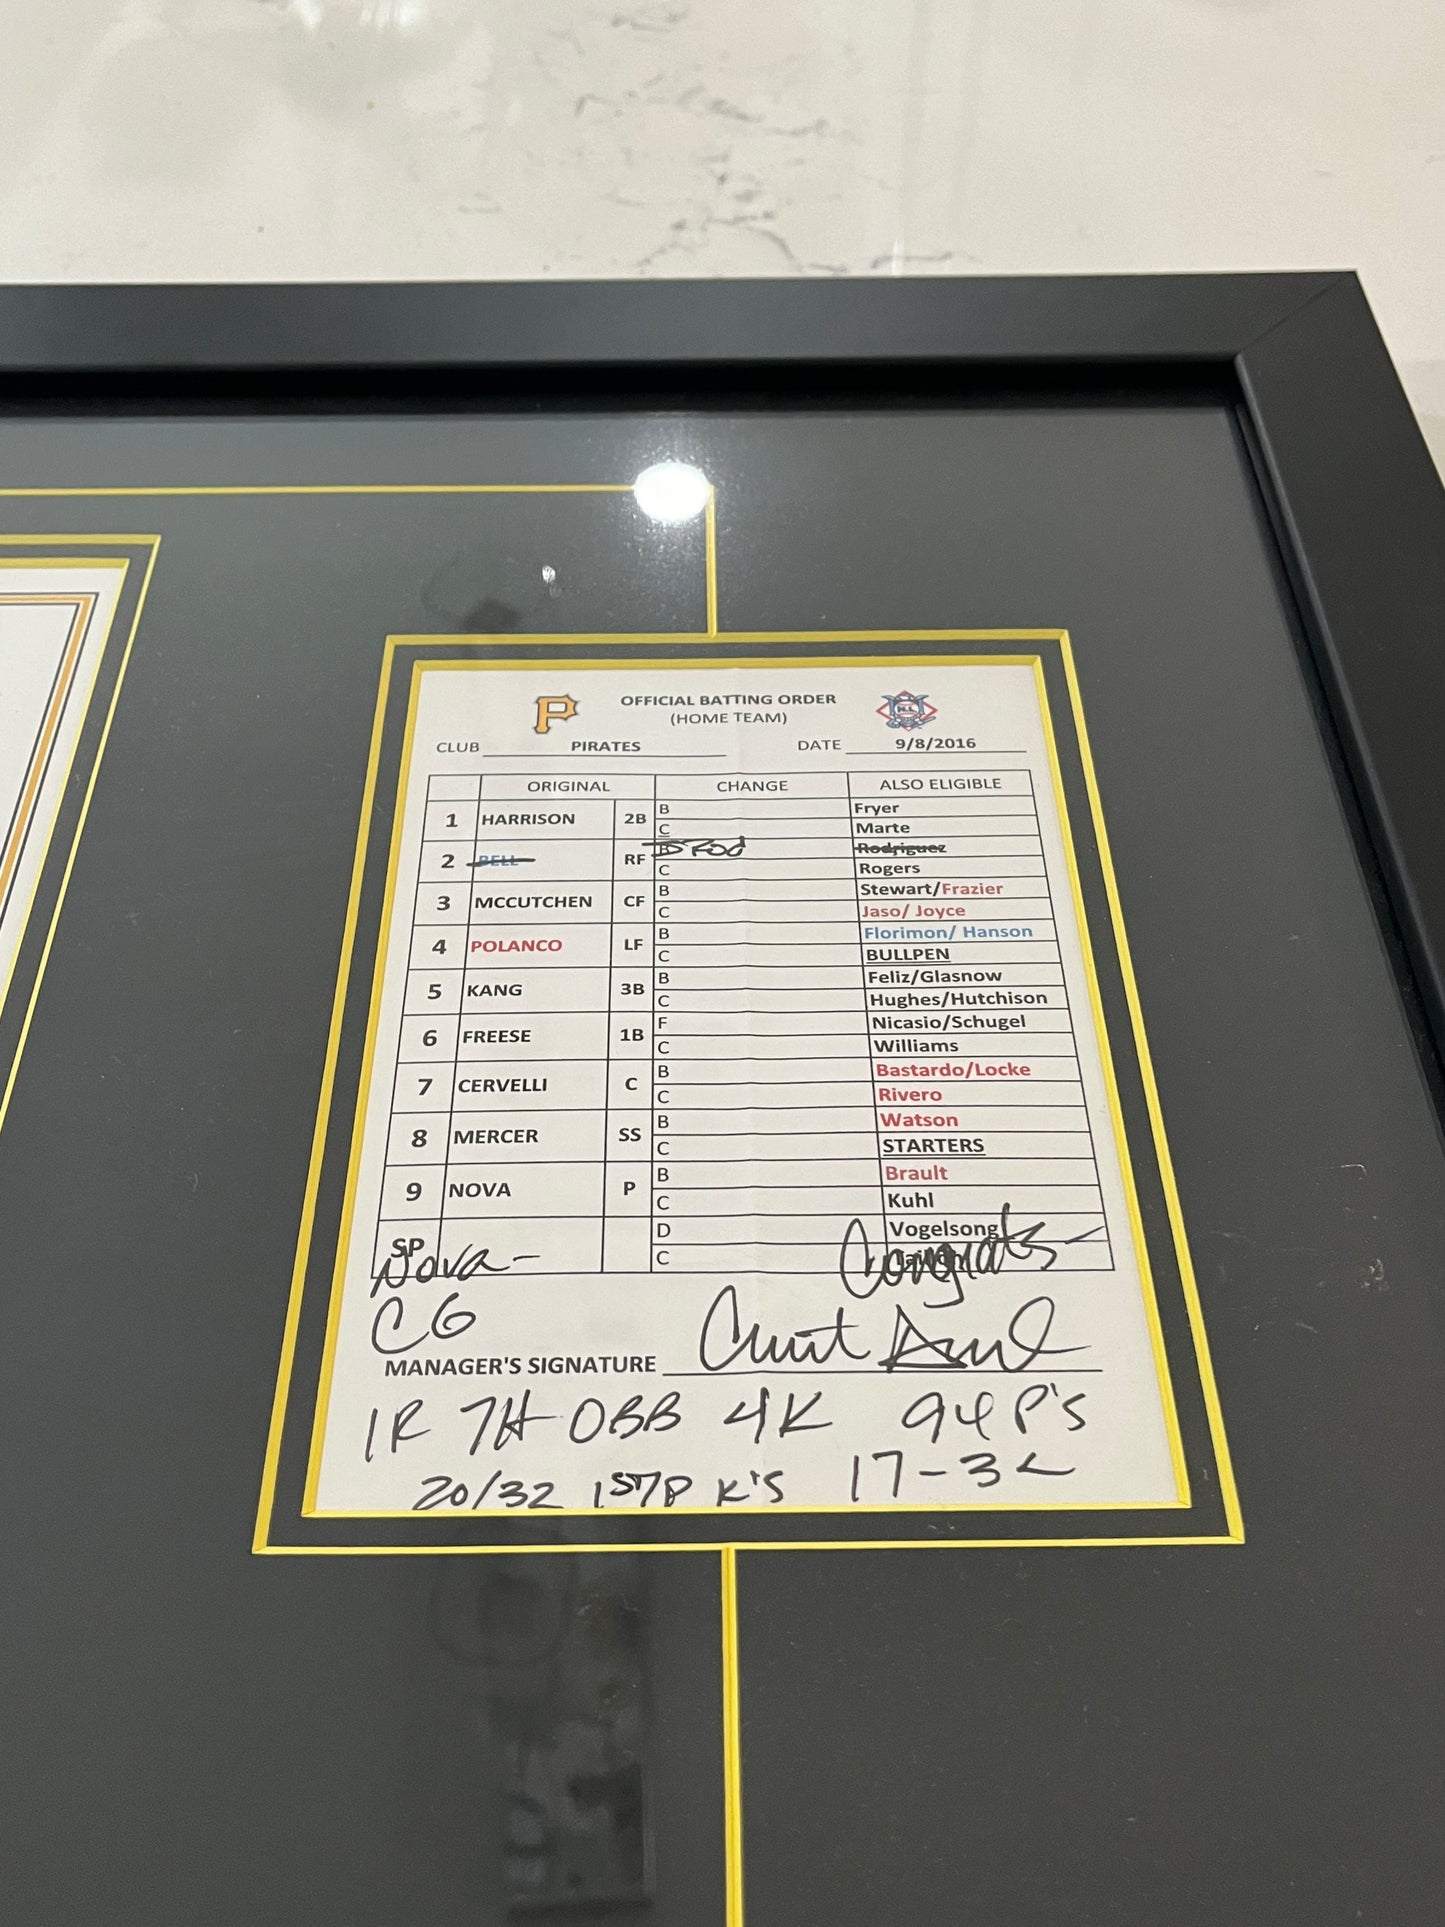 P
OFFICIAL BATTING ORDER
(HOME TEAM)
CLUB PIRATES DATE 9/8/2016
ORIGINAL CHANGE ALSO ELIGIBLE
1 HARRISON 2B B Fryer
C Marte
2 BELL RF B Rod Rodriguez
C Rogers
3 MCCUTCHEN CF B Stewart/Frazier
C Jaso/ Joyce
4 POLANCO LF B Florimon/ Hanson
C BULLPEN
5 KANG 3B B Feliz/Glasnow
C Hughes/Hutchison
6 FREESE 1B F Nicasio/Schugel
C Williams
7 CERVELLI C B Bastardo/Locke
C Rivero
8 MERCER SS B Watson
C STARTERS
9 NOVA P B Brault
C Kuhl
SP D Vogelsong
C
Nova- Congrats-
CG
MANAGER'S SIGNATURE
1R 7H 0BB 4K 94 P'S
20/32 1STP K'S 17-32